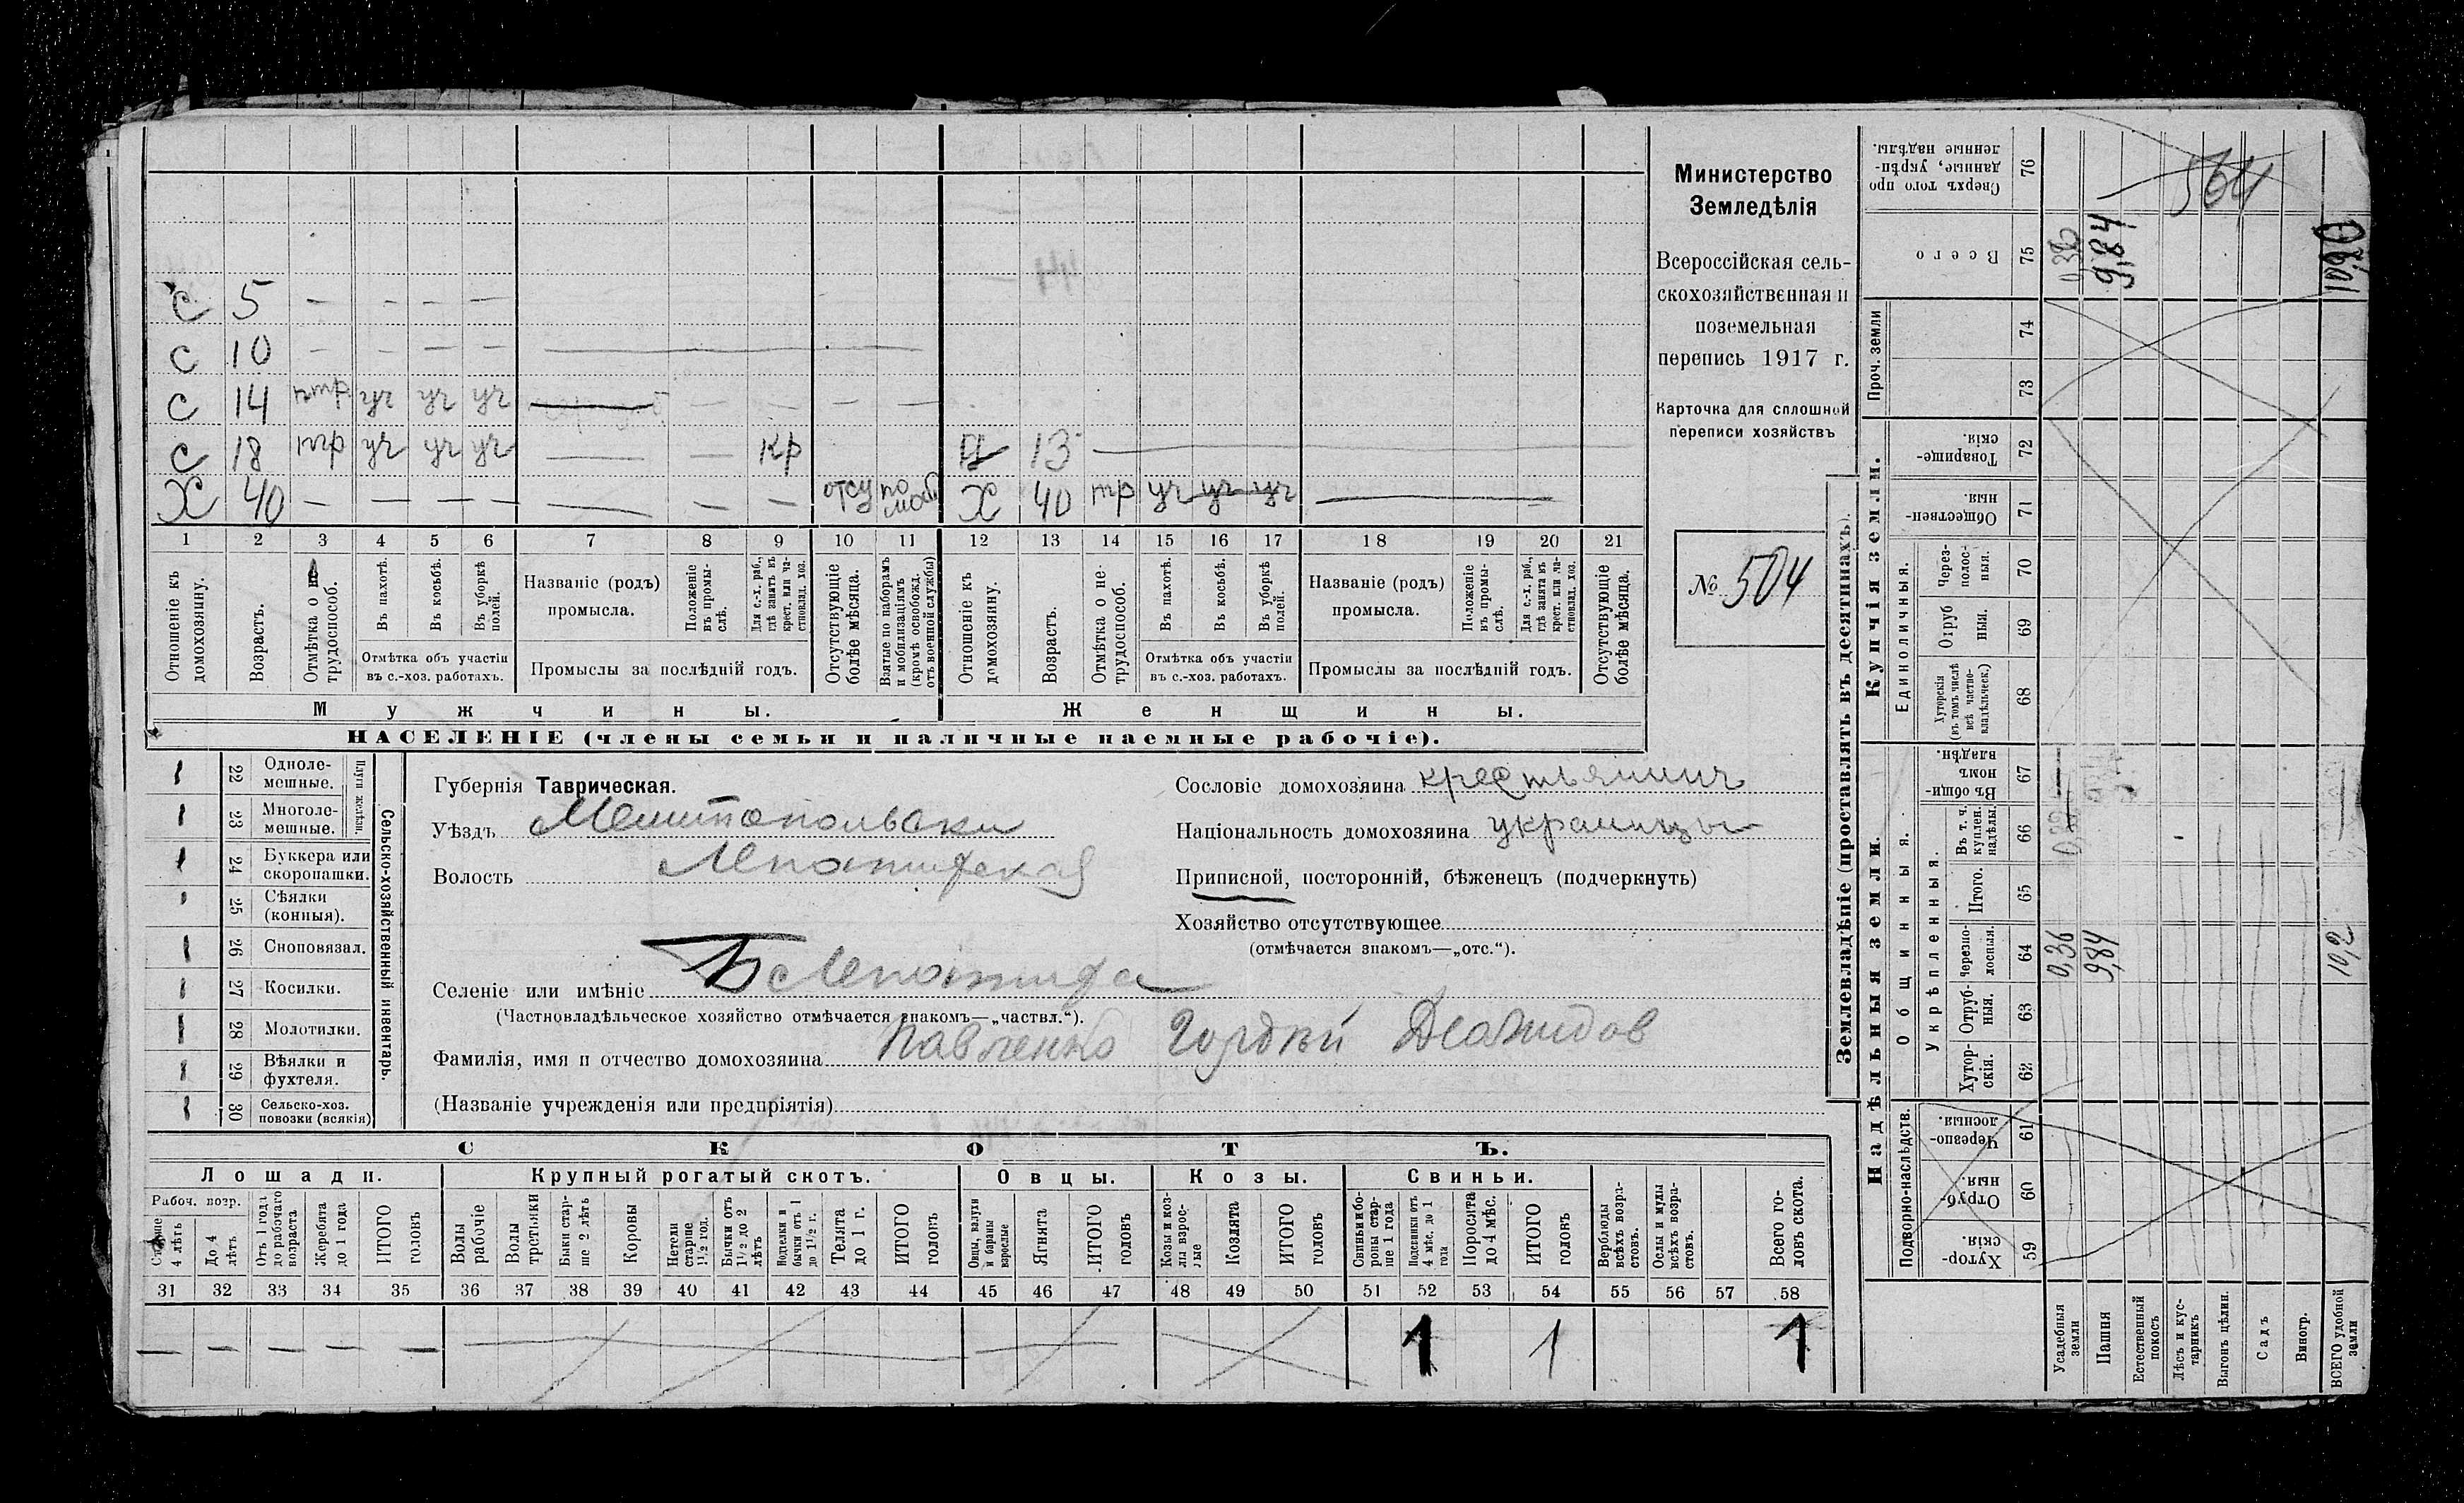 С 5 — — — —
С 10 — — — — —
С 14 птр уч уч уч — — — — —
С 18 тр уч уч уч — — кр
Х 40 — — — — — — — отсу по моб
д 13 —
Х 40 тр уч уч уч — —
1 2 3 4 5 6 7 8 9 10 11 12 13 14 15 16 17 18 19 20 21
Отношеніе къ домохозяину.
Возрастъ.
Отмѣтка о не трудоспособ.
Въ пахотѣ.
Въ косьбѣ.
Въ уборкѣ полей.
Отмѣтка объ участіи въ с.-хоз. работахъ.
Названіе (родъ) промысла.
Положеніе въ промыслѣ.
Для с.-х. раб., гдѣ занятъ въ крест. или частновлад. хоз.
Промыслы за послѣдній годъ.
Отсутствующіе болѣе мѣсяца.
Взятые по наборамъ и мобилизаціямъ (кромѣ освобожд. отъ военной службы)
Отношеніе къ домохозяину.
Возрастъ.
Отмѣтка о не трудоспособ.
Въ пахотѣ.
Въ косьбѣ.
Въ уборкѣ полей.
Отмѣтка объ участіи въ с.-хоз. работахъ.
Названіе (родъ) промысла.
Положеніе въ промыслѣ.
Для с.-х. раб., гдѣ занята въ крест. или частновлад. хоз.
Промыслы за послѣдній годъ.
Отсутствующіе болѣе мѣсяца.
Мужчины.
Женщины.
НАСЕЛЕНІЕ (члены семьи и наличные наемные рабочіе).
Министерство
Земледѣлія
Всероссійская сель-
скохозяйственная и
поземельная
перепись 1917 г.
Карточка для сплошной
переписи хозяйствъ
№ 504
Сельско-хозяйственный инвентарь.
Плуги желѣзн.
22 Одноле-
мешные.
23 Многоле-
мешные.
24 Буккера или
скоропашки.
25 Сѣялки
(конныя).
26 Сноповязал.
27 Косилки.
28 Молотилки.
29 Вѣялки и
фухтеля.
30 Сельско-хоз.
повозки (всякія)
Губернія Таврическая.
Уѣздъ Мелитопольски
Волость
Селеніе или имѣніе
(Частновладѣльческое хозяйство отмѣчается знакомъ—„частвл.“).
Фамилія, имя и отчество домохозяина Павленко Гордѣй Демидов
(Названіе учрежденія или предпріятія)
Сословіе домохозяина крестьянинъ
Національность домохозяина украинцы
Приписной, посторонній, бѣженецъ (подчеркнуть)
Хозяйство отсутствующее
(отмѣчается знакомъ—„отс.“).
СКОТЪ.
Лошади.
Крупный рогатый скотъ.
Овцы.
Козы.
Свиньи.
Рабоч. возр.
Старше 4 лѣтъ
До 4 лѣтъ
Отъ 1 года до рабочаго возраста
Жеребята до 1 года
ИТОГО головъ
Волы рабочіе
Волы третьяки
Быки старше 2 лѣтъ
Коровы
Нетели старше 1 1/2 год.
Бычки отъ 1 1/2 до 2 лѣтъ
Подтелки и бычки отъ 1 до 1 1/2 г.
Телята до 1 г.
ИТОГО головъ
Овцы, валухи и бараны взрослые
Ягнята
ИТОГО головъ
Козы и козлы взрослые
Козлята
ИТОГО головъ
Свиньи и бороны старше 1 года
Подсвинки отъ 4 мѣс. до 1 года
Поросята до 4 мѣс.
ИТОГО головъ
Верблюды всѣхъ возрастовъ.
Ослы и мулы всѣхъ возрастовъ.
Всего головъ скота.
31 32 33 34 35 36 37 38 39 40 41 42 43 44 45 46 47 48 49 50 51 52 53 54 55 56 57 58
— — — — — 1 1 1
Землевладѣніе (проставлять въ десятинахъ).
Надѣльныя земли.
Купчія земли.
Проч. земли
Подворно-наслѣдств.
Общинныя.
Укрѣпленныя.
Единоличныя.
Хуторскія. 59
Отрубныя. 60
Черезполосныя. 61
Хуторскія. 62
Отрубныя. 63
Черезполосныя. 64
Итого. 65
Въ т. ч. куплен. надѣлы. 66
Въ общинномъ владѣн. 67
Хуторскія (въ томъ числѣ всѣ частновладѣльческ.) 68
Отрубныя. 69
Черезполосныя. 70
Общественныя. 71
Товарищескія. 72
73
74
Всего 75
Сверхъ того проданные, укрѣпленные надѣлы. 76
Усадебныя земли 0,36 0,36
Пашня 9,84 9,84
Естественный покосъ
Лѣсъ и кустарникъ
Выгонъ цѣлин.
Садъ
Виногр.
ВСЕГО удобной земли 10,2
564